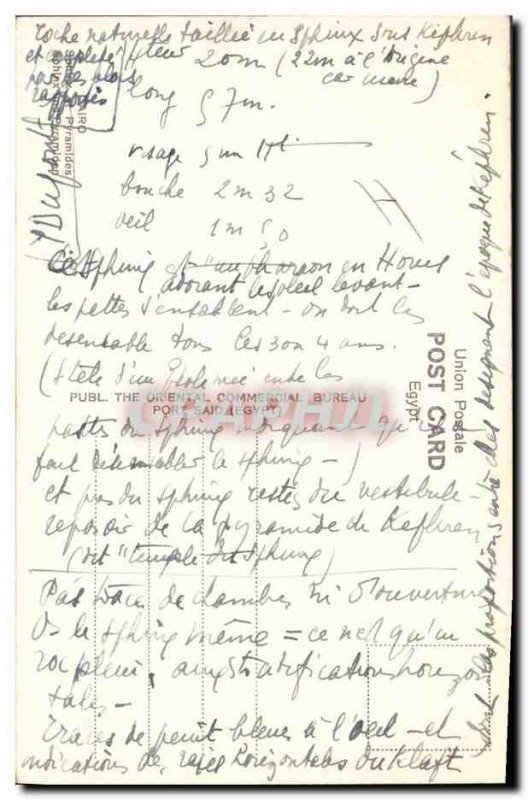 roche naturelle taillée en Sphinx sous Kephren
et complétée hteur 20m (22m à l'origine
par des blocs car usure)
rapportés long 57m.
CAIRO
Sphinx - Pyramides
Sphinx - Pyramids
visage 5m
bouche 2m 32
oeil 1m 50
Ce Sphinx est un pharaon en Horus
adorant le soleil levant -
les pattes s'ensablent - on doit les
désensabler tous les 3 ou 4 ans.
(stèle d'un Ptolémée entre les
PUBL. THE ORIENTAL COMMERCIAL BUREAU
PORT SAID (EGYPT)
pattes du sphinx indiquant qu'il
faut désensabler le sphinx -)
et près du sphinx restes du vestibule -
reposoir de la pyramide de Kephren
(dit "temple du Sphinx)
Union Postale
POST CARD
Egypt
Pas trace de chambres ni d'ouverture
ds le sphinx même = ce n'est qu'un
roc plein, avec stratifications horizon
tales -
Traces de peint bleue à l'oeil - et
indications de raies horizontales du Klaft
les proportions entre des designant l'époque de Kephren.